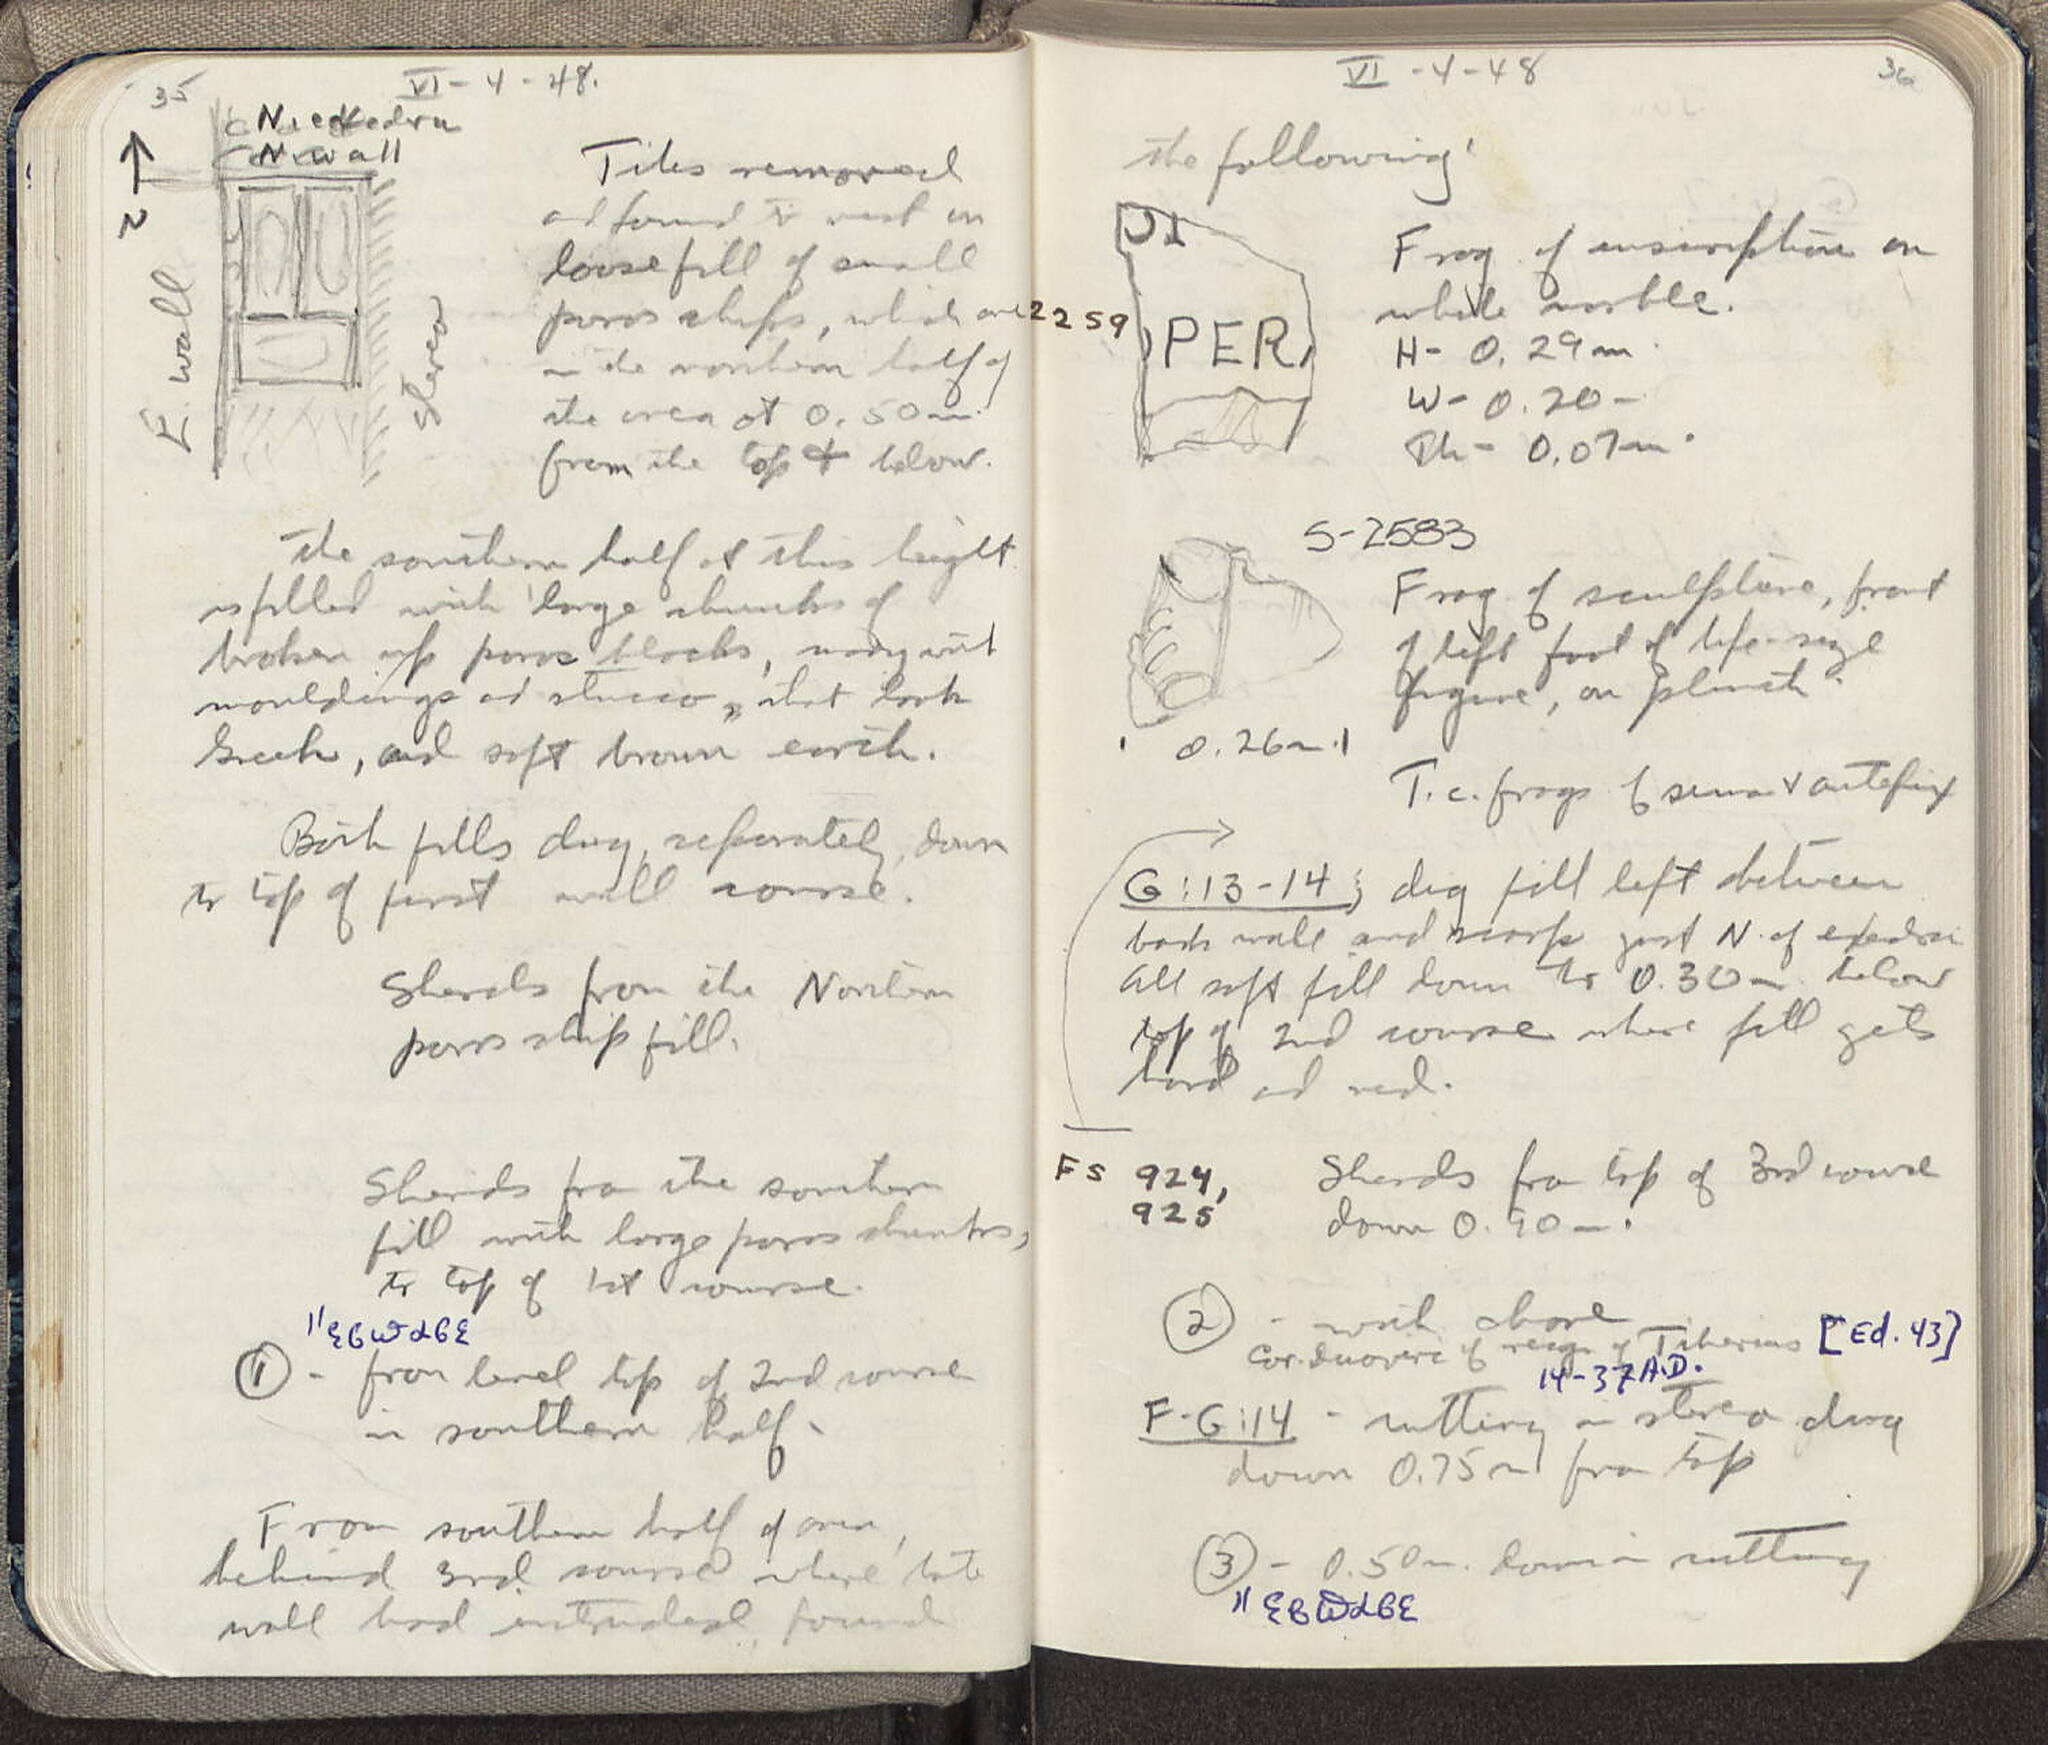 35
VI - 4 - 48.
N. exedra
N wall
N
E. wall
Stereo
Tiles removed
and found to rest on
loose fill of small
poros chips, which are
in the northern half of
the area at 0.50 m.
from the top & below.
the southern half at this height
is filled with large chunks of
broken up poros blocks, many with
mouldings and stucco, that look
Greek, and soft brown earth.
Both fills dug, separately, down
to top of first wall course.
Sherds from the Northern
poros chip fill.
Sherds from the southern
fill with large poros chunks,
to top of 1st course.
① - from level top of 2nd course
in southern half -
From southern half of area,
behind 3rd course where late
wall had intruded, found
VI - 4 - 48
36
the following:
2259
PER
Frag. of inscription on
white marble.
H - 0.29 m.
W - 0.20 -
Th - 0.07 m.
S-2583
Frag. of sculpture, front
of left foot of life-size
figure, on plinth.
0.26 m.
T.c. frags of sima & antefix
G:13-14; dug fill left between
back wall and scarp just N. of exedra
All soft fill down to 0.30 m. below
top of 2nd course where fill gets
hard and red.
FS 924,
925
Sherds from top of 3rd course
down 0.90 m.
② - with above
Cor. duoviri of reign of Tiberius [Ed. 43]
14-37 A.D.
F-G:14 - cutting in stereo dug
down 0.75 m from top
③ - 0.50 m. down in cutting